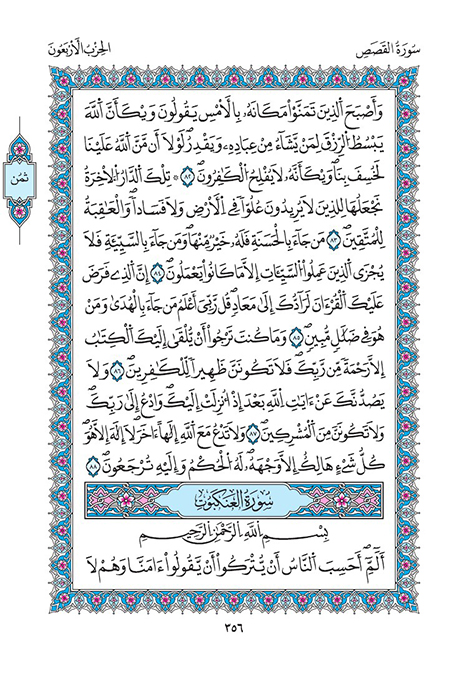 سُورَةُ القَصَصِ
الحِزْبُ الأَرْبَعُونَ
ثمُن
وَأَصْبَحَ اَ۬لذِينَ تَمَنَّوْاْ مَكَانَهُۥ بِالَامْسِ يَقُولُونَ وَيْكَأَنَّ اَ۬للَّهَ
يَبْسُطُ اُ۬لرِّزْقَ لِمَنْ يَّشَآءُ مِنْ عِبَادِهِۦ وَيَقْدِرُ لَوْلَآ أَن مَّنَّ اَ۬للَّهُ عَلَيْنَا
لَخُسِفَ بِنَا وَيْكَأَنَّهُۥ لَا يُفْلِحُ اُ۬لْكَٰفِرُونَ ٨٢ ۞ تِلْكَ اَ۬لدَّارُ اُ۬لَاخِرَةُ
نَجْعَلُهَا لِلذِينَ لَا يُرِيدُونَ عُلُوّاٗ فِے اِ۬لَارْضِ وَلَا فَسَاداٗ وَالْعَٰقِبَةُ
لِلْمُتَّقِينَ ٨٣ مَن جَآءَ بِالْحَسَنَةِ فَلَهُۥ خَيْرٞ مِّنْهَا وَمَن جَآءَ بِالسَّيِّئَةِ فَلَا
يُجْزَى اَ۬لذِينَ عَمِلُواْ اُ۬لسَّيِّـَٔاتِ إِلَّا مَا كَانُواْ يَعْمَلُونَ ٨٤ إِنَّ اَ۬لذِے فَرَضَ
عَلَيْكَ اَ۬لْقُرْءَانَ لَرَآدُّكَ إِلَىٰ مَعَادٖ قُل رَّبِّيَ أَعْلَمُ مَن جَآءَ بِالْهُدَىٰ وَمَنْ
هُوَ فِے ضَلَٰلٖ مُّبِينٖ ٨٥ وَمَا كُنتَ تَرْجُوٓاْ أَنْ يُّلْقَىٰٓ إِلَيْكَ اَ۬لْكِتَٰبُ
إِلَّا رَحْمَةٗ مِّن رَّبِّكَ فَلَا تَكُونَنَّ ظَهِيراٗ لِّلْكَٰفِرِينَ ٨٦ وَلَا
يَصُدُّنَّكَ عَنَ اٰيَٰتِ اِ۬للَّهِ بَعْدَ إِذُ ا۟نزِلَتِ اِلَيْكَ وَادْعُ إِلَىٰ رَبِّكَ
وَلَا تَكُونَنَّ مِنَ اَ۬لْمُشْرِكِينَ ٨٧ وَلَا تَدْعُ مَعَ اَ۬للَّهِ إِلَٰهاً ءَاخَرَ لَآ إِلَٰهَ إِلَّا هُوَ
كُلُّ شَيْءٍ هَالِكٌ اِلَّا وَجْهَهُۥ لَهُ اُ۬لْحُكْمُ وَإِلَيْهِ تُرْجَعُونَ ٨٨
سُورَةُ العَنكَبُوتِ
بِسْمِ اِ۬للَّهِ اِ۬لرَّحْمَٰنِ اِ۬لرَّحِيمِ
أَلَٓمِّٓ أَحَسِبَ اَ۬لنَّاسُ أَنْ يُّتْرَكُوٓاْ أَنْ يَّقُولُوٓاْ ءَامَنَّا وَهُمْ لَا
٣٥٦